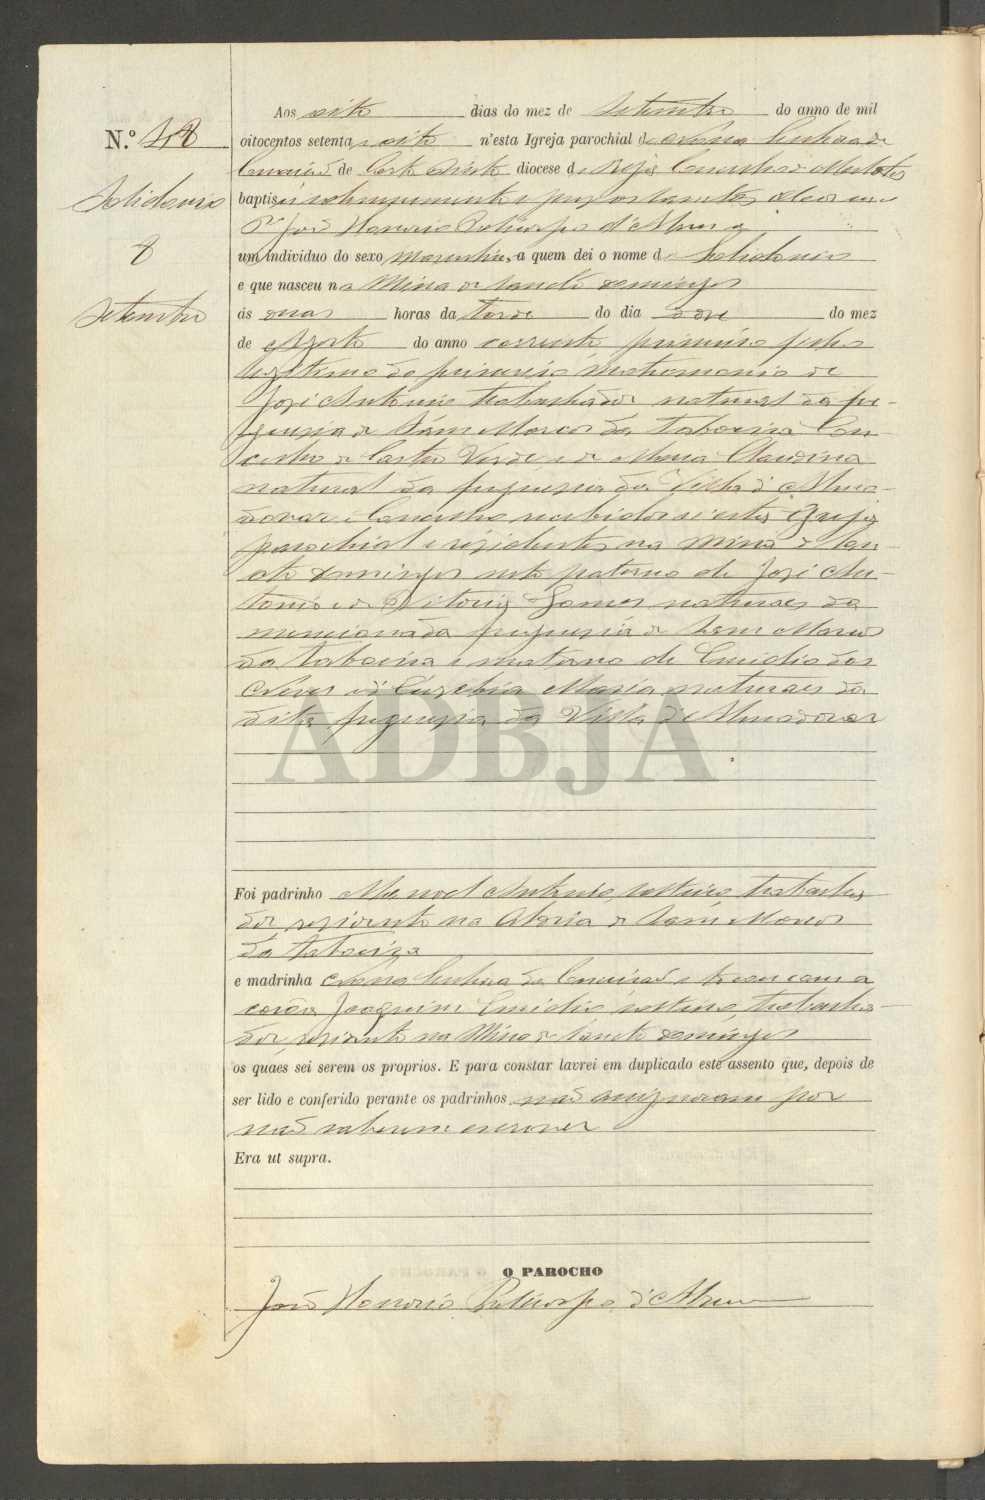 Aos oito dias do mez de Setembro do anno de mil
N.º 48 oitocentos setenta e oito n'esta Igreja parochial de Nossa Senhora da
Conceição de Corte do Pinto diocese de Beja Concelho de Mertola
Solidonio
baptisei solemnemente e puz os Santos Oleos eu
P.e João Honorio Policarpo d'Abreu
8
um individuo do sexo masculino, a quem dei o nome de Solidonio
e que nasceu na Mina de Sancto Domingos
Setembro
ás onas horas da tarde do dia doze do mez
de Agosto do anno corrente primeiro filho
legitimo do primeiro matrimonio de
José Antonio trabalhador natural da fre-
guesia de Sam Marcos da Taboeira Con-
celho de Castro Verde e de Maria Claudina
natural da freguesia da Villa d'Almo-
dovar e Concelho recebidos n'esta Igreja
parochial e residentes na Mina de San-
cto Domingos neto paterno de José An-
tonio e de Vitoria Gomes naturaes da
mencionada freguesia de Sam Marcos
da Taboeira e materno de Emidio das
Neves e d'Euzebia Maria naturaes da
dita freguesia da Villa d'Almodovar
ADBJA
Foi padrinho Manoel Antonio, solteiro, trabalha-
dor, residente na Aldeia de Sam Marcos
da Taboeira
e madrinha Nossa Senhora da Conceição e tocou com a
corôa Joaquim Emidio, solteiro, trabalha-
dor, residente na Mina de Sancto Domingos
os quaes sei serem os proprios. E para constar lavrei em duplicado este assento que, depois de
ser lido e conferido perante os padrinhos não assignaram por
não saberem escrever
Era ut supra.
O PAROCHO
João Honorio Policarpo d'Abreu